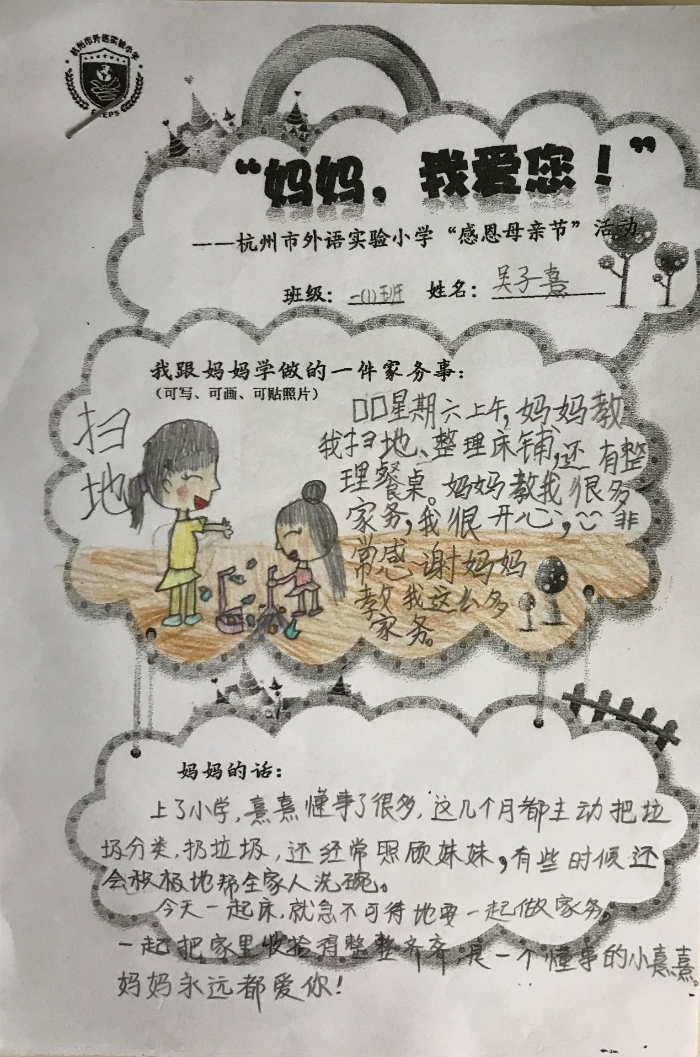 杭州市外语实验小学
“妈妈，我爱您！”
——杭州市外语实验小学“感恩母亲节”活动
班级：一(1)班 姓名：吴子熹
我跟妈妈学做的一件家务事：
（可写、可画、可贴照片）
扫
地
□□星期六上午,妈妈教
我扫地、整理床铺,还有整
理餐桌。妈妈教我很多
家务,我很开心,非
常感谢妈妈
教我这么多
家务。
妈妈的话：
上了小学,熹熹懂事了很多,这几个月都主动把垃
圾分类,扔垃圾,还经常照顾妹妹,有些时候还
会积极地帮全家人洗碗。
今天一起床,就急不可待地要一起做家务,
一起把家里收拾得整整齐齐,是一个懂事的小熹熹。
妈妈永远都爱你!